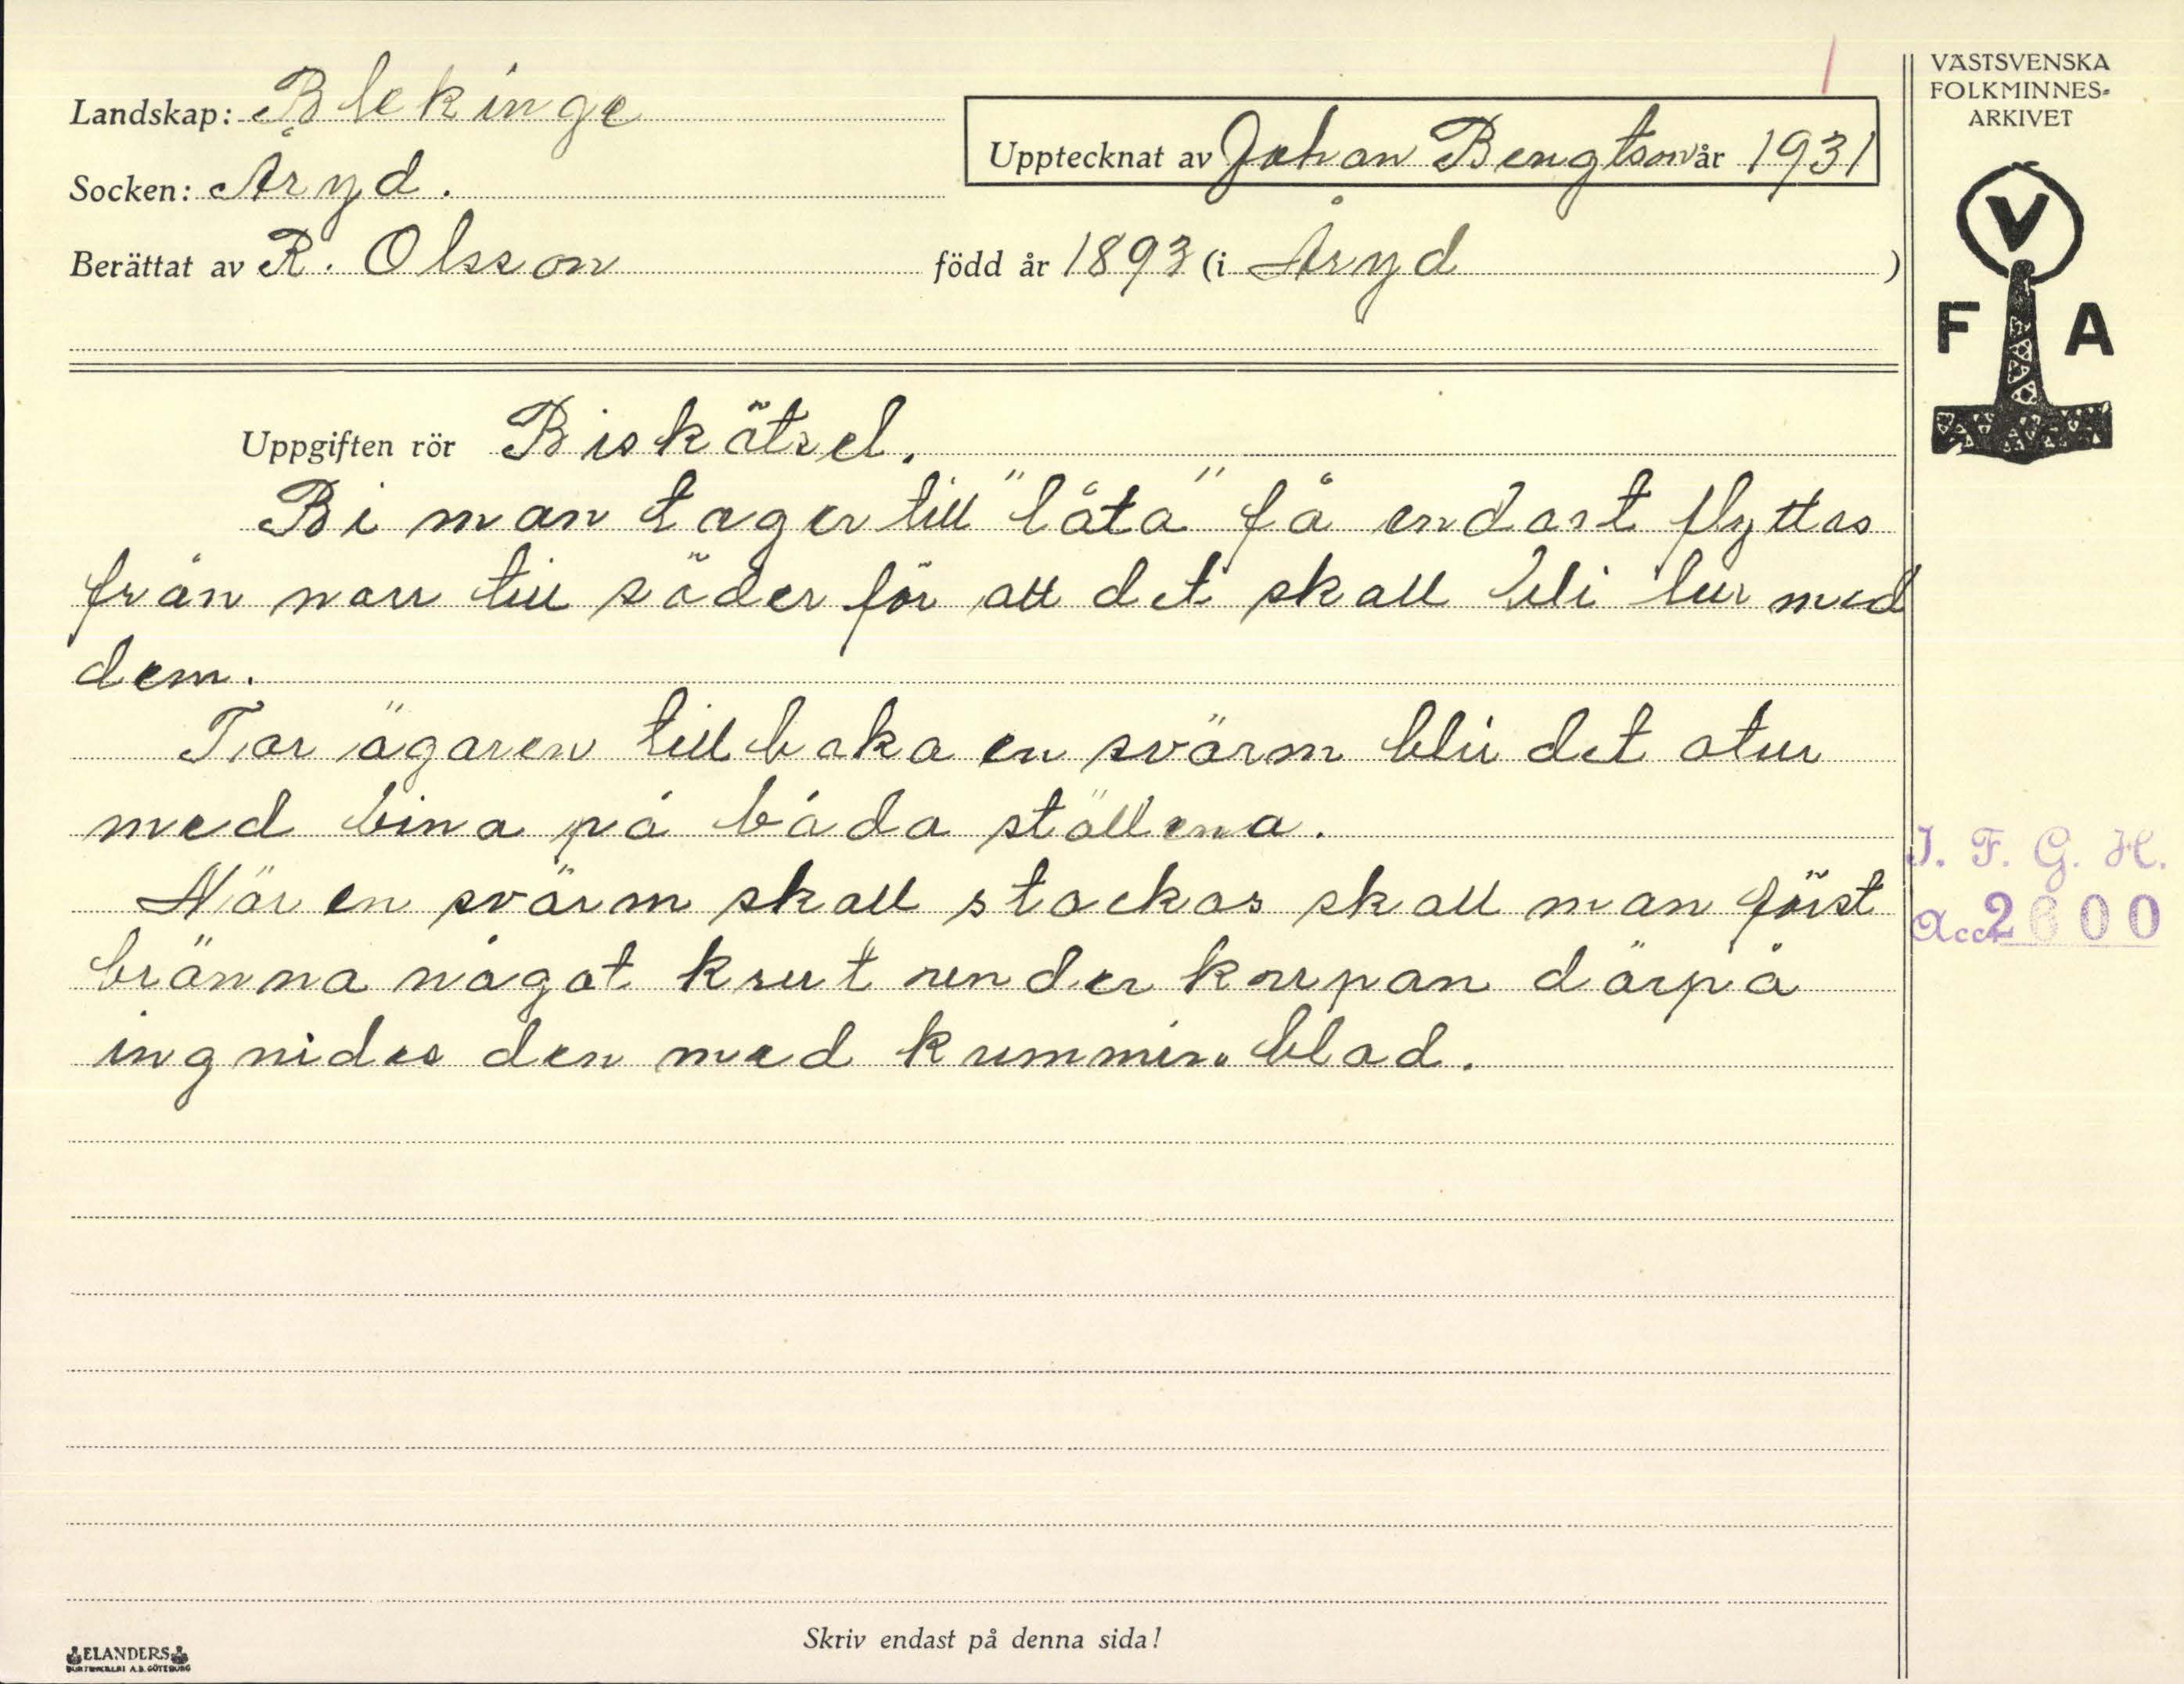 Landskap: Blekinge
Socken: Åryd.
Berättat av R. Olsson
Upptecknat av Johan Bengtson år 1931
född år 1893 (i Åryd )
VÄSTSVENSKA
FOLKMINNES-
ARKIVET
V
F A
Uppgiften rör Biskötsel.
Bi man tager till "låta" få endast flyttas
från norr till söder för att det skall bli tur med
dem.
Tar ägaren tillbaka en svärm blir det otur
med bina på båda ställena.
När en svärm skall stockas skall man först
bränna något krut under kupan därpå
ingnides den med kummin blad.
I. F. G. H.
Acc. 2600
Skriv endast på denna sida!
ELANDERS
BOKTRYCKERI A.B. GÖTEBORG